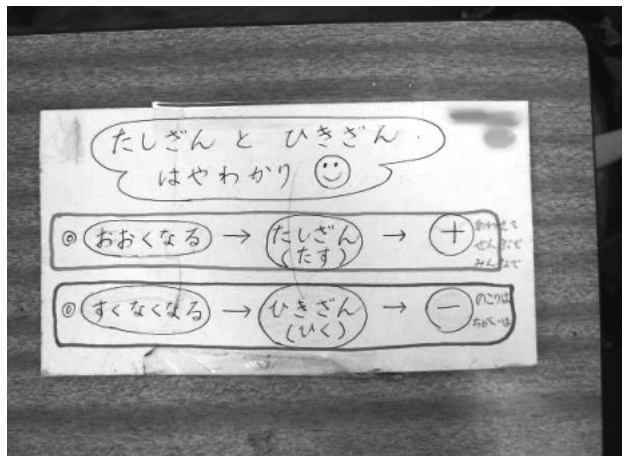 たしざん と ひきざん
はやわかり
◎ おおくなる → たしざん (たす) → + あわせて ぜんぶで みんなで
◎ すくなくなる → ひきざん (ひく) → − のこりは ちがいは